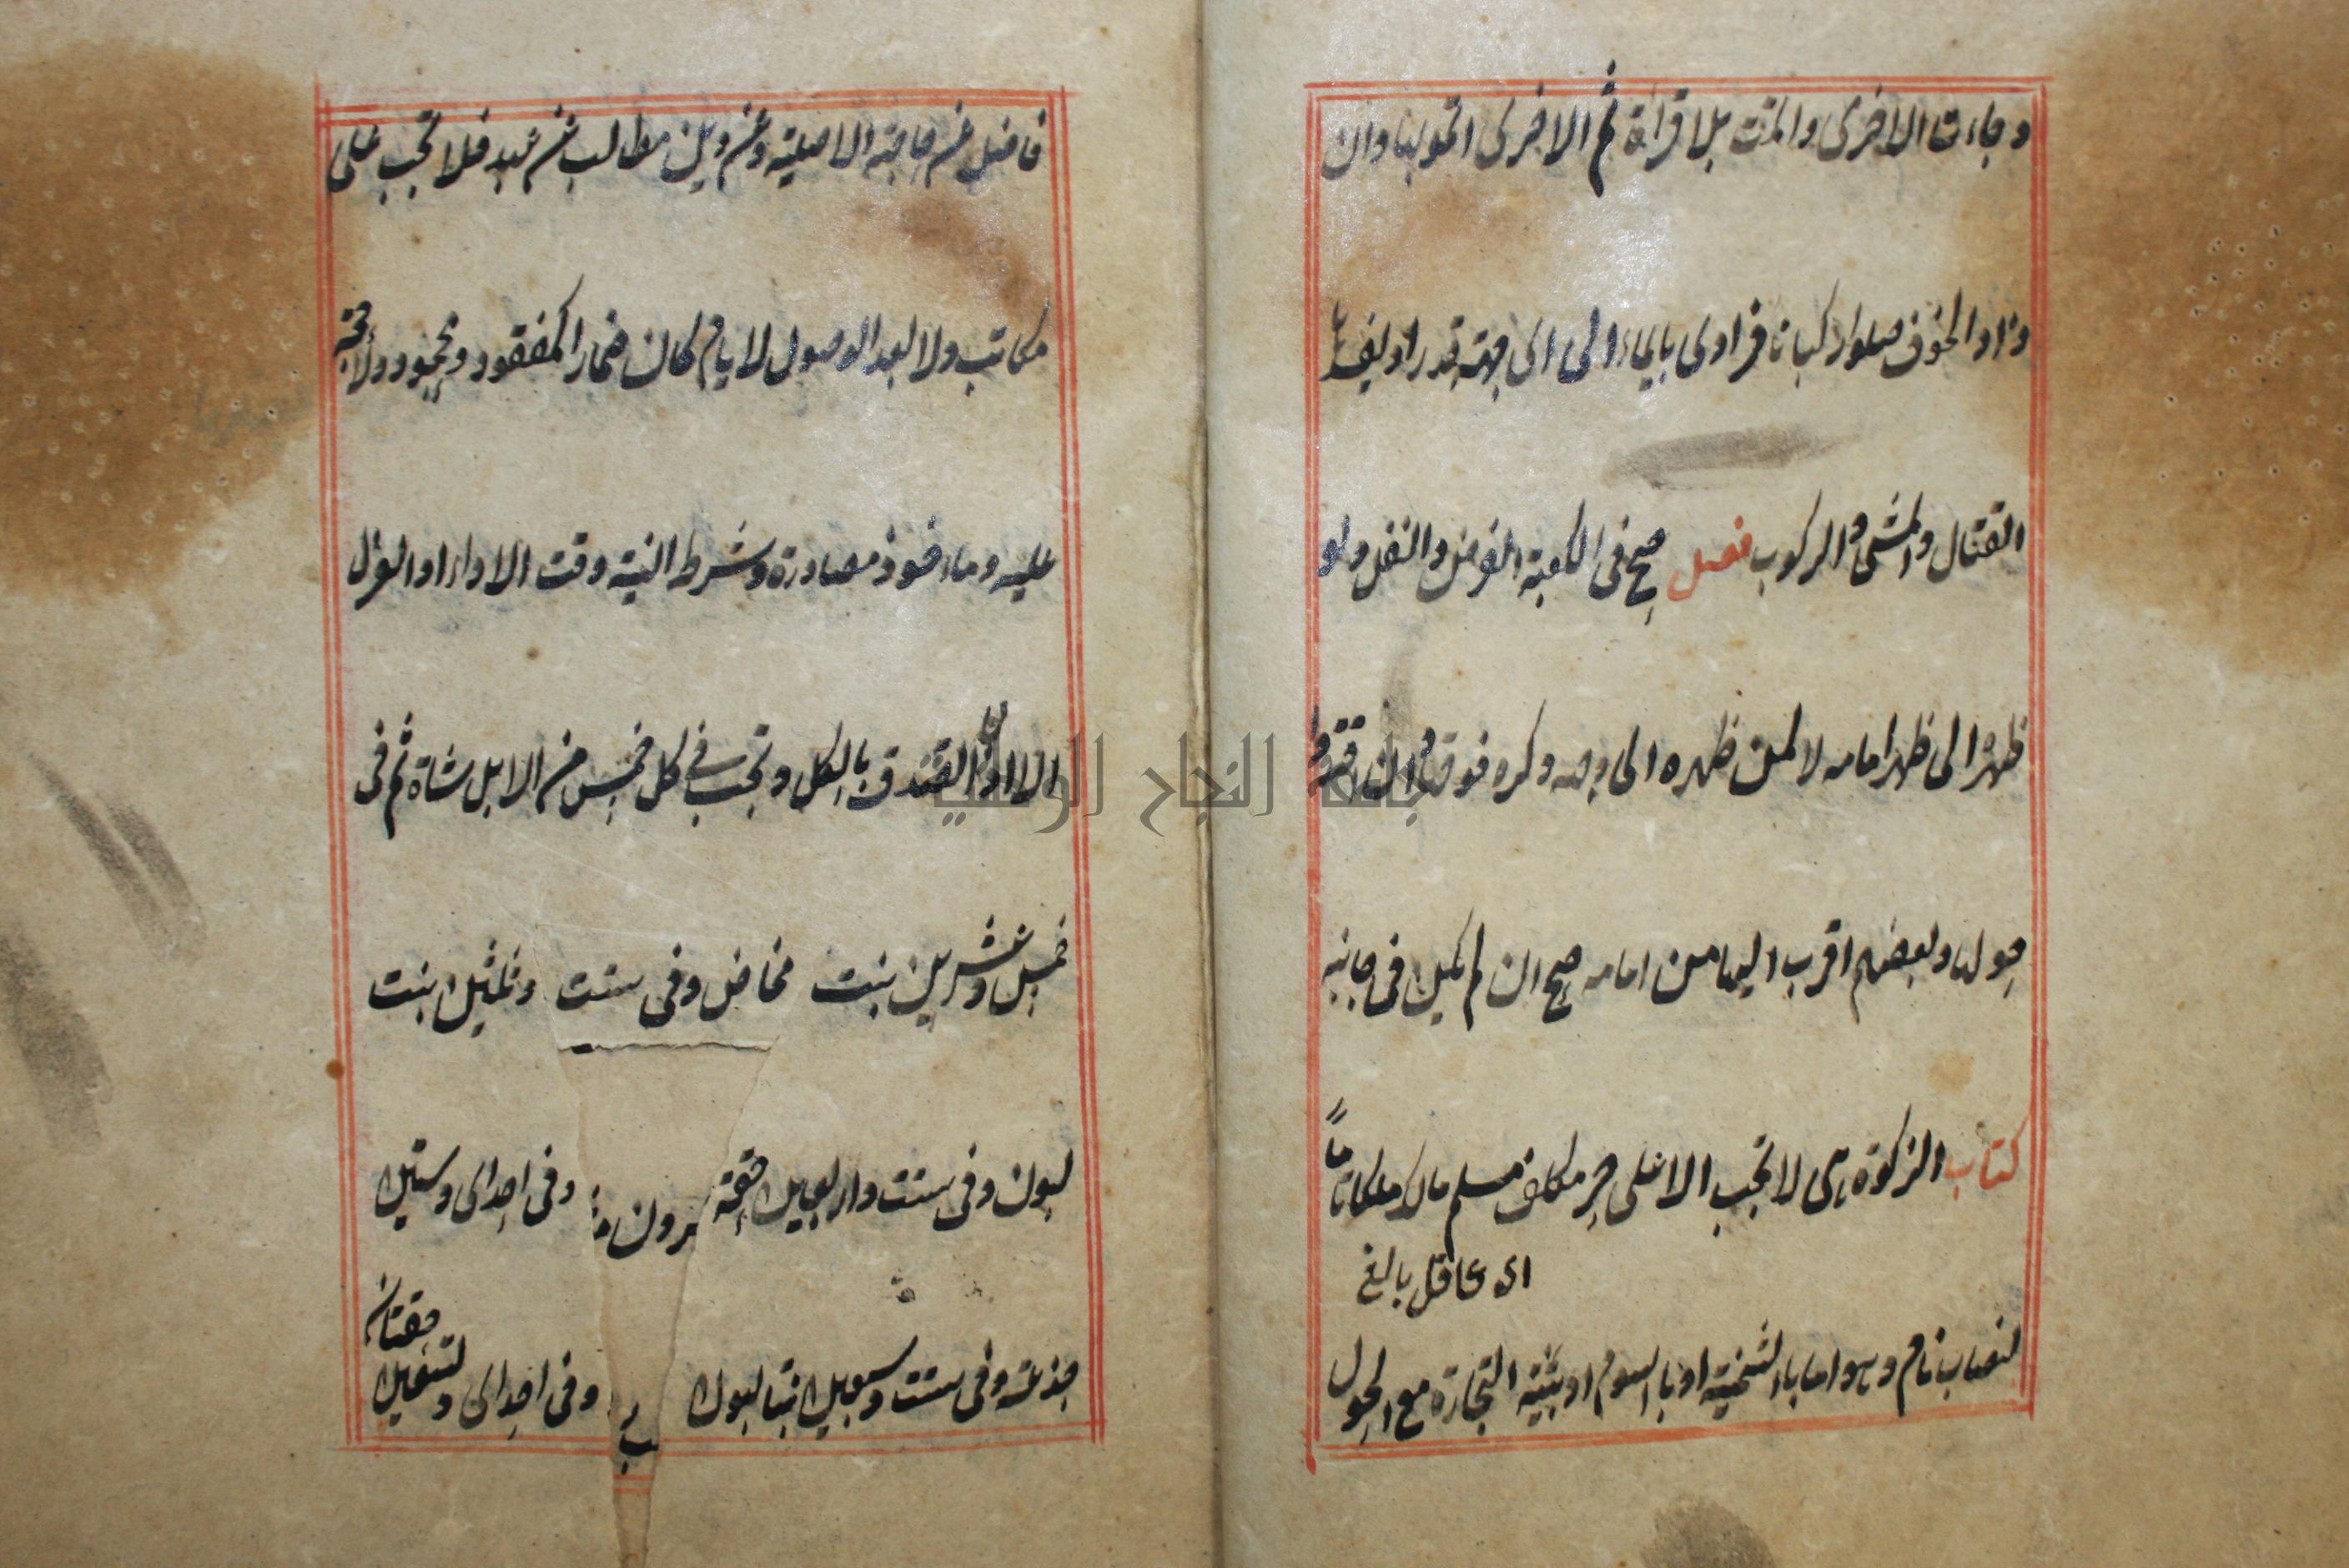 وجاءت الاخرى واتمت بلا قراءة ثم الاخرى اتموا بها وان
زاد الخوف صلوا ركبانا فرادى بايماء الى اى جهة قدروا ويفسدها
القتال والمشى والركوب فصل صح فى الكعبة الفرض والنفل ولو
ظهره الى ظهر امامه لا لمن ظهره الى وجهه وكره فوقها وان اقتدوا
حولها وبعضهم اقرب اليها من امامه صح ان لم يكن فى جانبه
كتاب الزكوة هى لا تجب الا على حر مكلف مسلم مالك ملكا تاما
اى عاقل بالغ
لنصاب نام وهو اما بالثمنية او بالسوم او بنية التجارة مع الحول
فاضل عن حاجته الاصلية وعن دين مطالب من عبد فلا تجب على
مكاتب ولا بعد الوصول لايام كان ضمارا كمفقود ومجحود ولا حجة
عليه وماخوذ مصادرة وشرط النية وقت الاداء او العزل
الا اذا تصدق بالكل وتجب فى كل خمس من الابل شاة ثم فى
خمس وعشرين بنت مخاض وفى ست وثلثين بنت
لبون وفى ست واربعين حقة وفى احدى وستين
جذعة وفى ست وسبعين بنتا لبون وفى احدى وتسعين حقتان
جامعة النجاح الوطنية